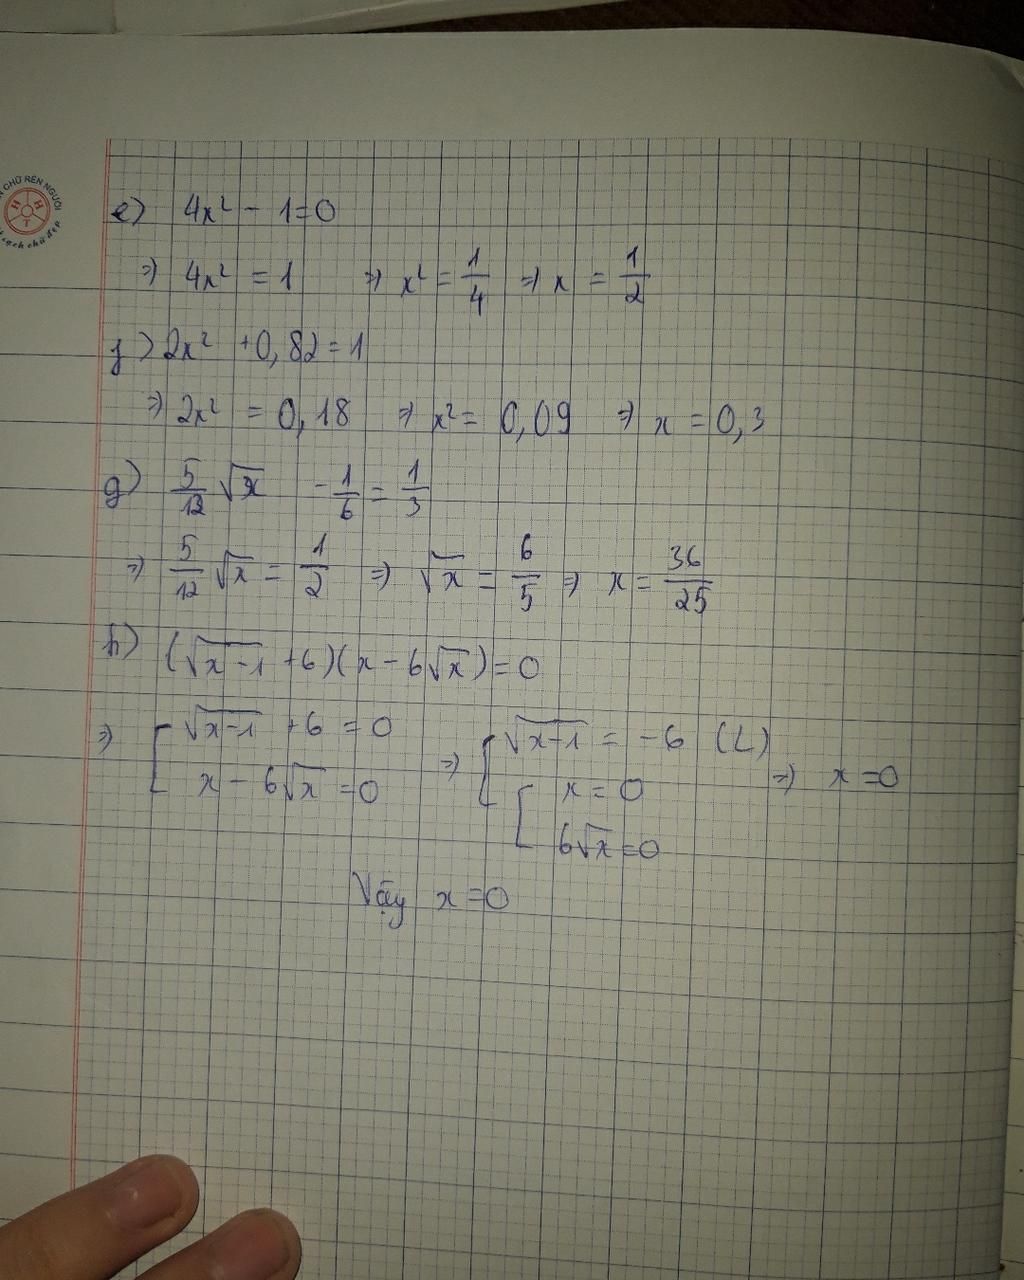 CHỮ RÈN NGƯỜI
H H T
e) 4x² - 1 = 0
⇒ 4x² = 1 ⇒ x² = 1/4 ⇒ x = 1/2
f) 2x² + 0,82 = 1
⇒ 2x² = 0,18 ⇒ x² = 0,09 ⇒ x = 0,3
g) 5/12 √x - 1/6 = 1/3
⇒ 5/12 √x = 1/2 ⇒ √x = 6/5 ⇒ x = 36/25
h) (√(x-1) + 6)(x - 6√x) = 0
⇒ [ √(x-1) + 6 = 0 ⇒ [ √(x-1) = -6 (L)
x - 6√x = 0 [ x = 0 ⇒ x = 0
6√x = 0
Vậy x = 0